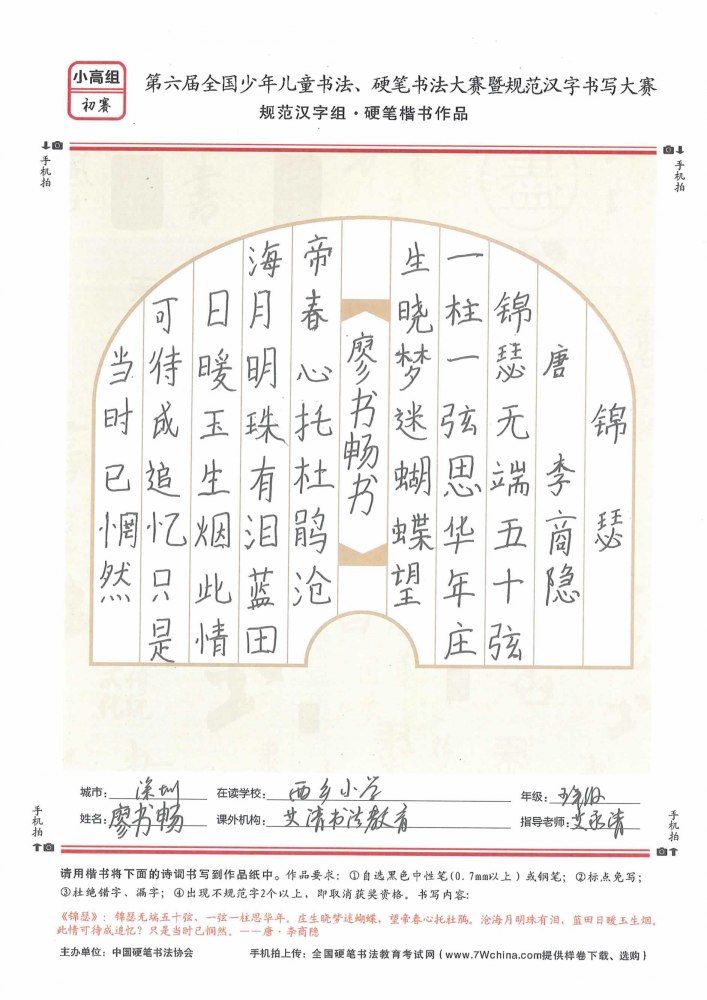 小高组
初赛
第六届全国少年儿童书法、硬笔书法大赛暨规范汉字书写大赛
规范汉字组·硬笔楷书作品
手机拍
手机拍
锦瑟
唐 李商隐
锦瑟无端五十弦
一柱一弦思华年庄
生晓梦迷蝴蝶望
廖书畅书
帝春心托杜鹃沧
海月明珠有泪蓝田
日暖玉生烟此情
可待成追忆只是
当时已惘然
城市：深圳 在读学校：西乡小学 年级：
姓名：廖书畅 课外机构：艾清书法教育 指导老师：
手机拍
手机拍
请用楷书将下面的诗词书写到作品纸中。作品要求：①自选黑色中性笔(0.7mm以上)或钢笔；②标点免写；
③杜绝错字、漏字；④出现不规范字2个以上，即取消获奖资格。书写内容：
《锦瑟》：锦瑟无端五十弦，一弦一柱思华年。庄生晓梦迷蝴蝶，望帝春心托杜鹃。沧海月明珠有泪，蓝田日暖玉生烟。
此情可待成追忆？只是当时已惘然。——唐·李商隐
主办单位：中国硬笔书法协会 手机拍上传：全国硬笔书法教育考试网（www.7Wchina.com提供样卷下载、选购）